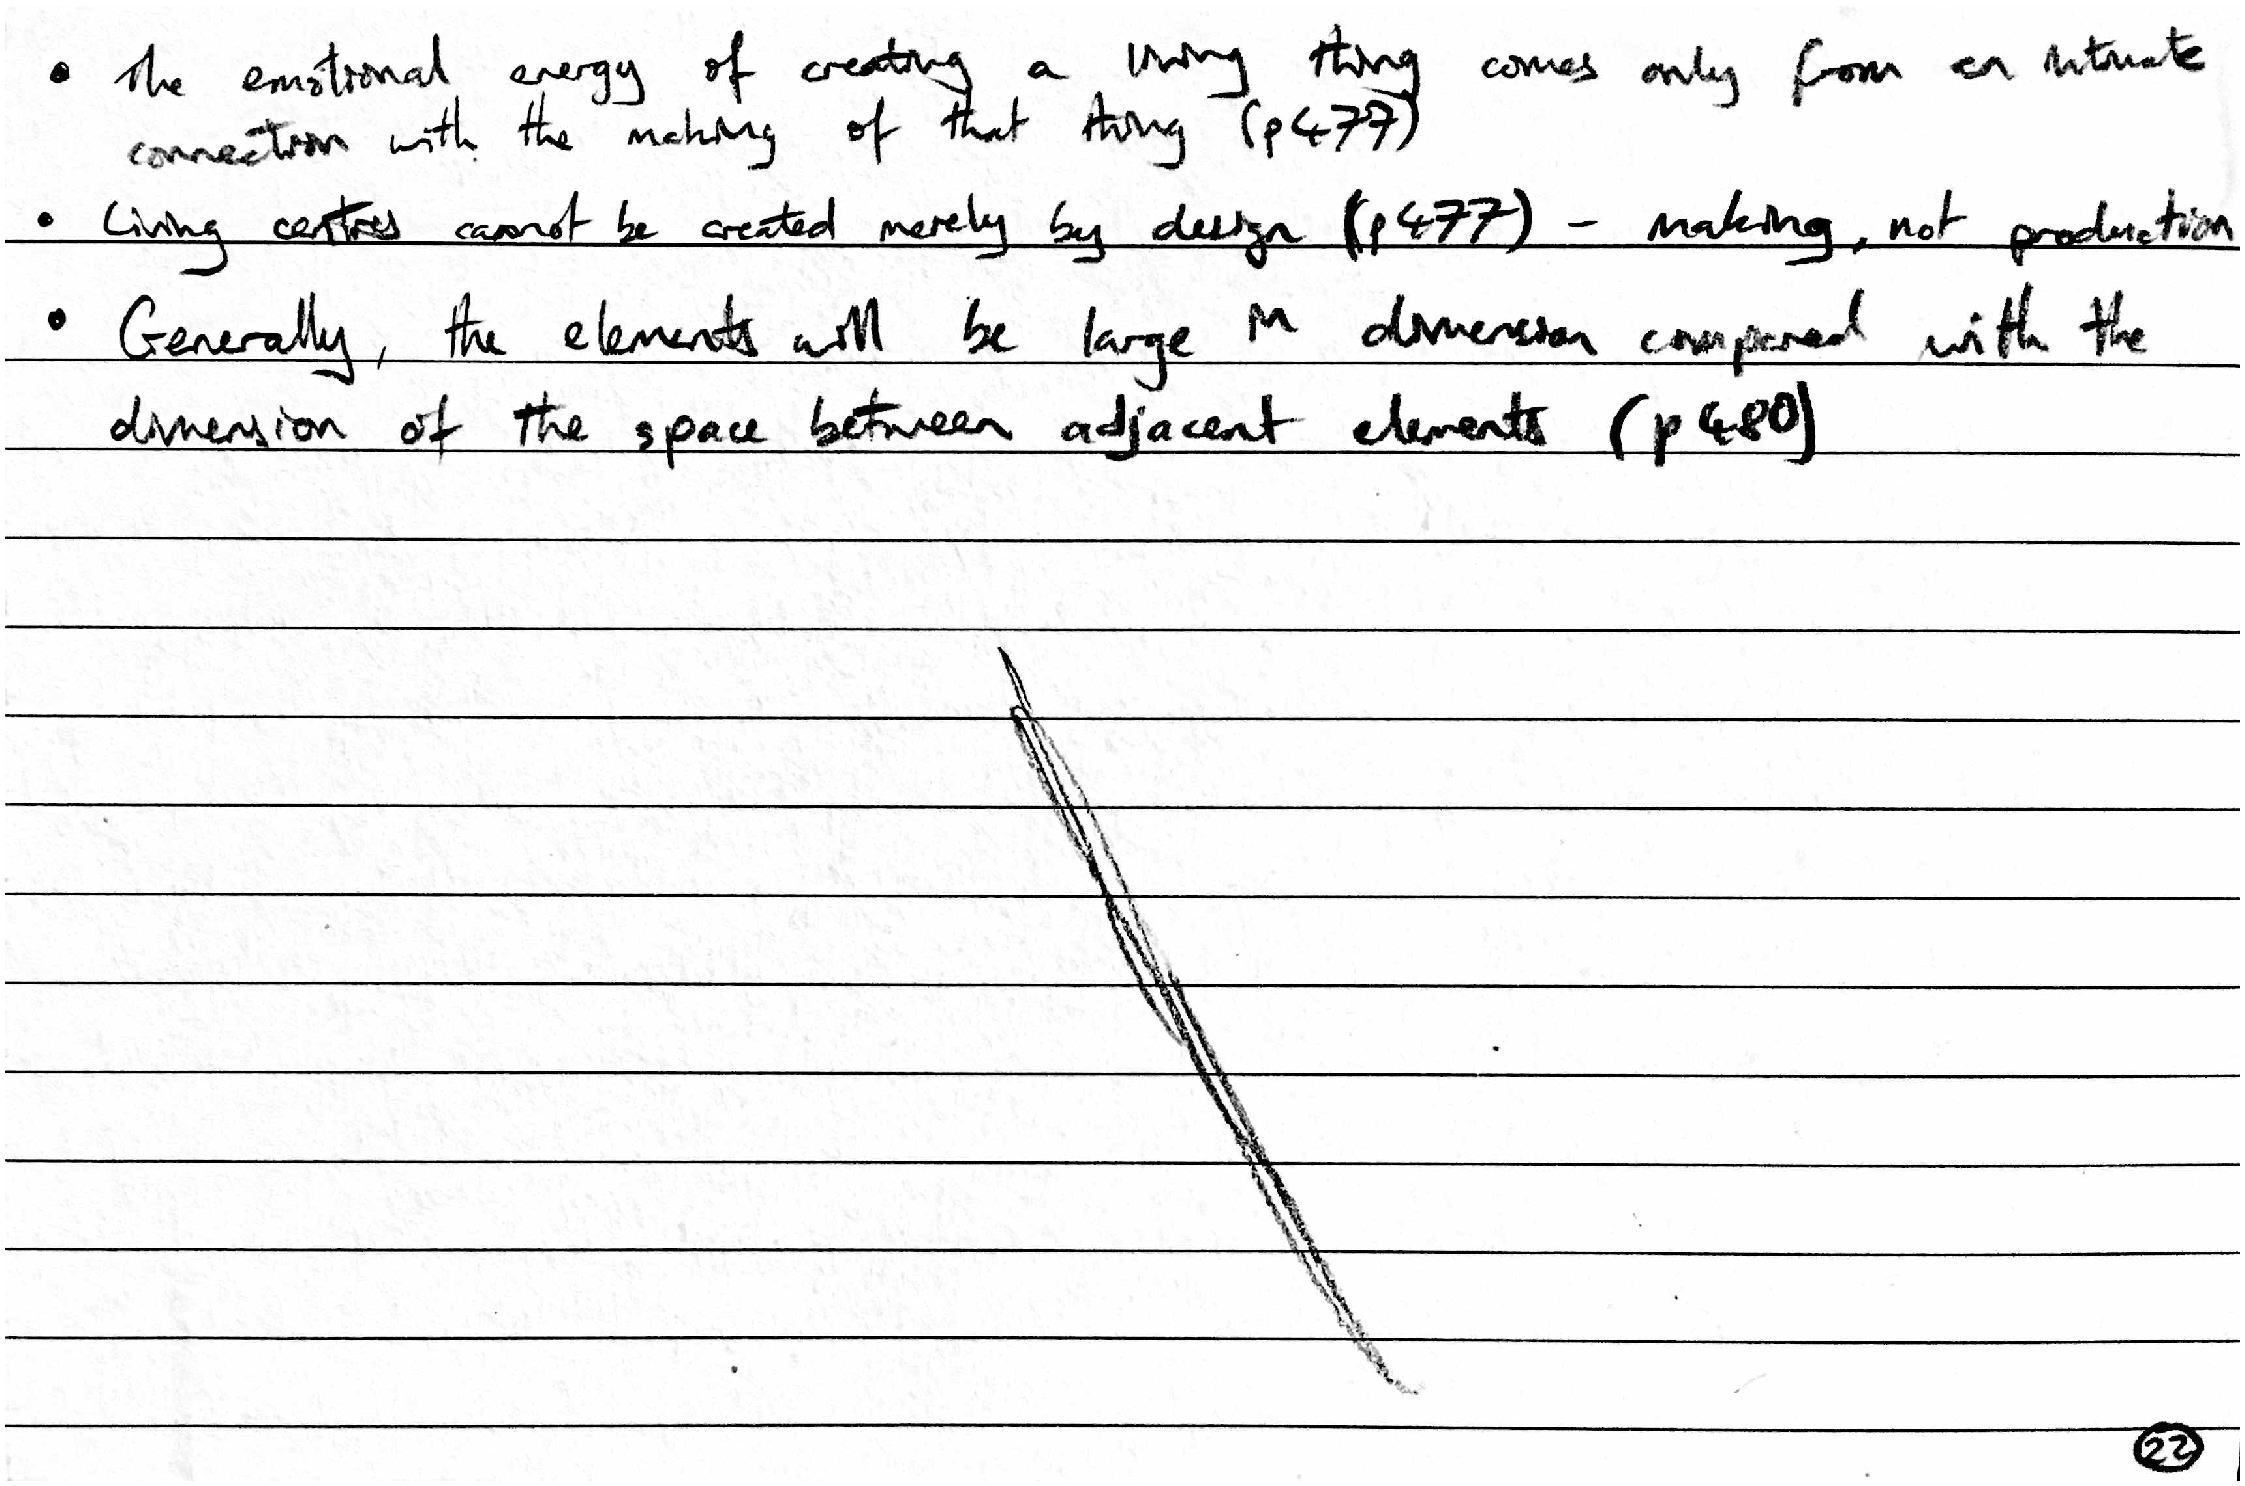 • The emotional energy of creating a living thing comes only from an intimate
connection with the making of that thing (p477)
• Living centres cannot be created merely by design (p477) – making, not production
• Generally, the elements will be large in dimension compared with the
dimension of the space between adjacent elements (p480)
22